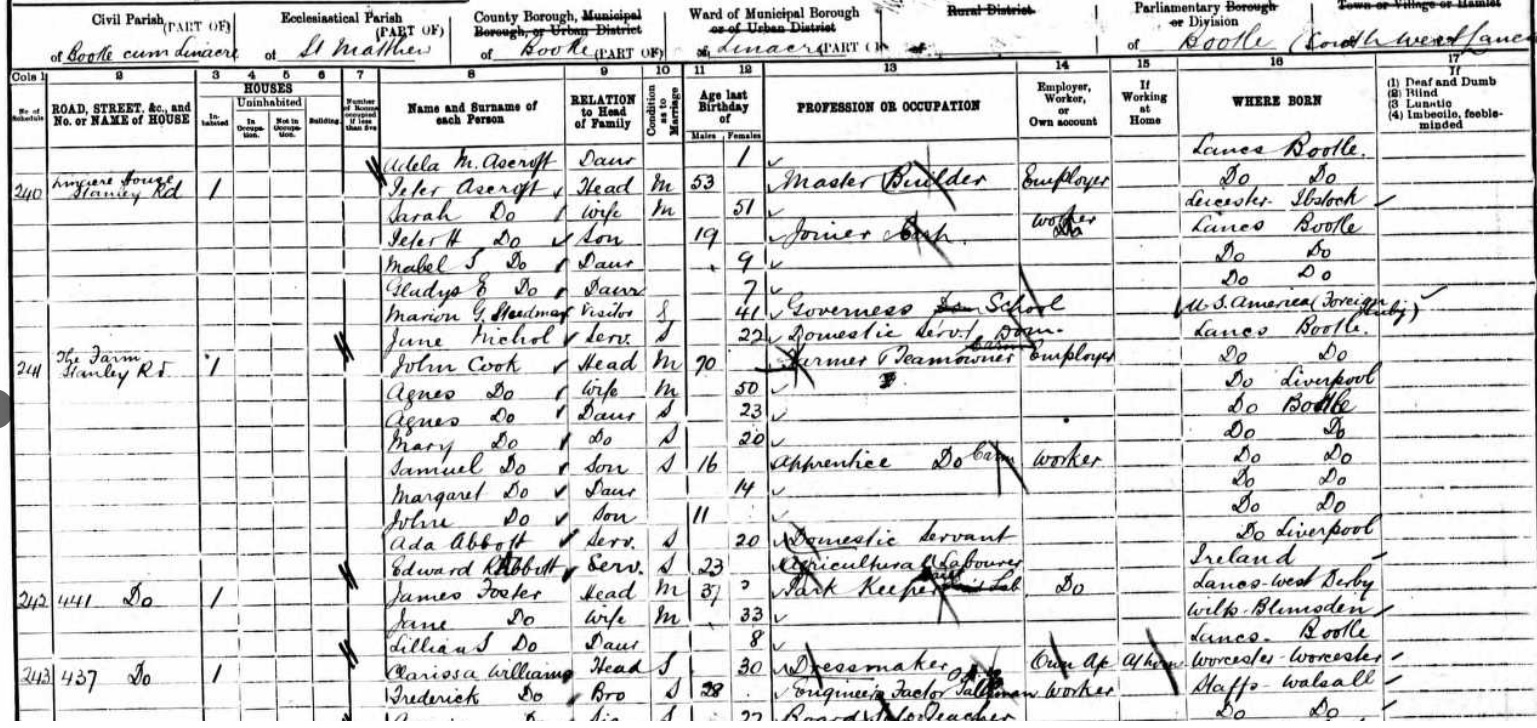 Civil Parish (PART OF) Ecclesiastical Parish (PART OF) County Borough, Municipal Borough, or Urban District Ward of Municipal Borough or of Urban District Rural District Parliamentary Borough or Division Town or Village or Hamlet
of Bootle cum Linacre of St Matthew of Bootle (PART OF) of Linacre (PART OF) of of Bootle (South West Lancs
Cols 1 2 3 4 5 6 7 8 9 10 11 12 13 14 15 16 17
No. of Schedule ROAD, STREET, &c., and No. or NAME of HOUSE HOUSES Inhabited Uninhabited In Occupation. Not in Occupation. Building. Number of Rooms occupied if less than five Name and Surname of each Person RELATION to Head of Family Condition as to Marriage Age last Birthday of Males Females PROFESSION OR OCCUPATION Employer, Worker, or Own account If Working at Home WHERE BORN If (1) Deaf and Dumb (2) Blind (3) Lunatic (4) Imbecile, feeble-minded
Adela M. Ascroft Daur 1 Lancs Bootle.
240 House Stanley Rd 1 Peter Ascroft Head M 53 Master Builder Employer Do Do
Sarah Do Wife M 51 Leicester- Ibstock
Peter H Do Son 19 Joiner worker Lancs Bootle
Mabel Do Daur 9 Do Do
Gladys E Do Daur 7 Do Do
Marion G. Steedman Visitor S 41 Governess School U.S. America (Foreign
June Nichol Serv. S 22 Domestic Serv. Dom- Lancs Bootle.
241 The Farm Stanley Rd 1 John Cook Head M 70 Farmer Teamowner Employer Do Do
Agnes Do Wife M 50 Do Liverpool
Agnes Do Daur S 23 Do Bootle
Mary Do Do S 20 Do Do
Samuel Do Son S 16 Apprentice Do worker Do Do
Margaret Do Daur 14 Do Do
John Do Son 11 Do Do
Ada Abbott Serv. S 20 Domestic Servant Do Liverpool
Edward Serv. S 23 Agricultural Labourer Ireland
242 441 Do 1 James Foster Head M 37 Park Keeper Do Lancs-West Derby
Jane Do Wife M 33 Wilts-Blunsden
Lillian Do Daur 8 Lancs. Bootle
243 437 Do 1 Clarissa Williams Head S 30 Dressmaker Own Ac At home Worcester-Worcester
Frederick Do Bro S 28 Engineers Factor Worker Staffs-Walsall
Do 27 Board Teacher Do Do